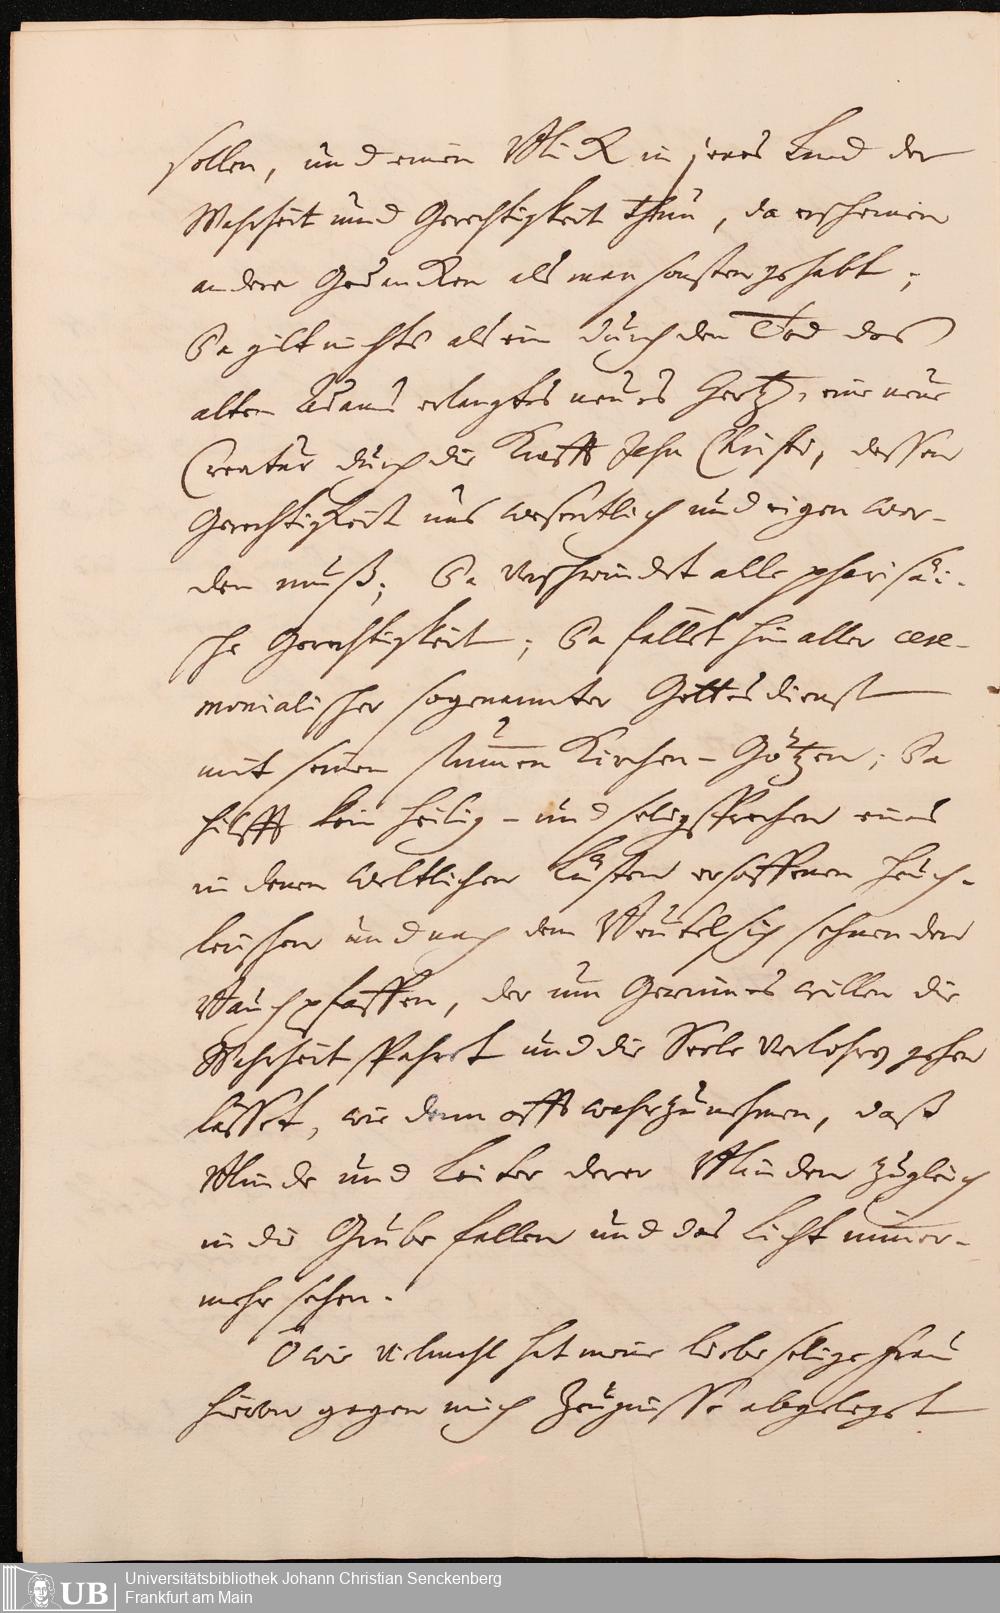 sollen, und einen Blick in jenes Land der
Wahrheit und Gerechtigkeit thun, da erscheinen
andere Gedancken als man sonsten gehabt;
Da gilt nichts als ein durch den Tod des
alten Adams erlangtes neues Hertz, eine neue
Creatur durch die Krafft Jesu Christi, dessen
Gerechtigkeit uns wesentlich und eigen wer-
den muß; Da verschwindet alle pharisäi-
sche Gerechtigkeit; Da fället hin aller cere-
monialischer sogenannter Gottesdienst
mit seinen stummen Kirchen-Götzen; Da
hilfft kein heilig- und seligsprechen eines
in denen weltlichen Lüsten ersoffenen heuch-
lerischen und nach dem Beutel sich sehnenden
Bauchpfaffen, der um Gewinnes willen die
Wahrheit spahret und die Seele verlohren gehen
lässet, wie denn offt wahrzunehmen, daß
Blinde und Leiter derer Blinden zugleich
in die Grube fallen und das Licht nimmer-
mehr sehen.
O wie vielmahl hat meine liebe selige Frau
hievon gegen mich Zeugnisse abgeleget
Universitätsbibliothek Johann Christian Senckenberg
Frankfurt am Main
UB